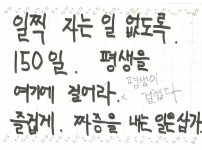 일찍 자는 일 없도록.
150일. 평생을
여기에 걸어라.
평생이
걸렸다
즐겁게. 짜증을 내는 일은 삼가